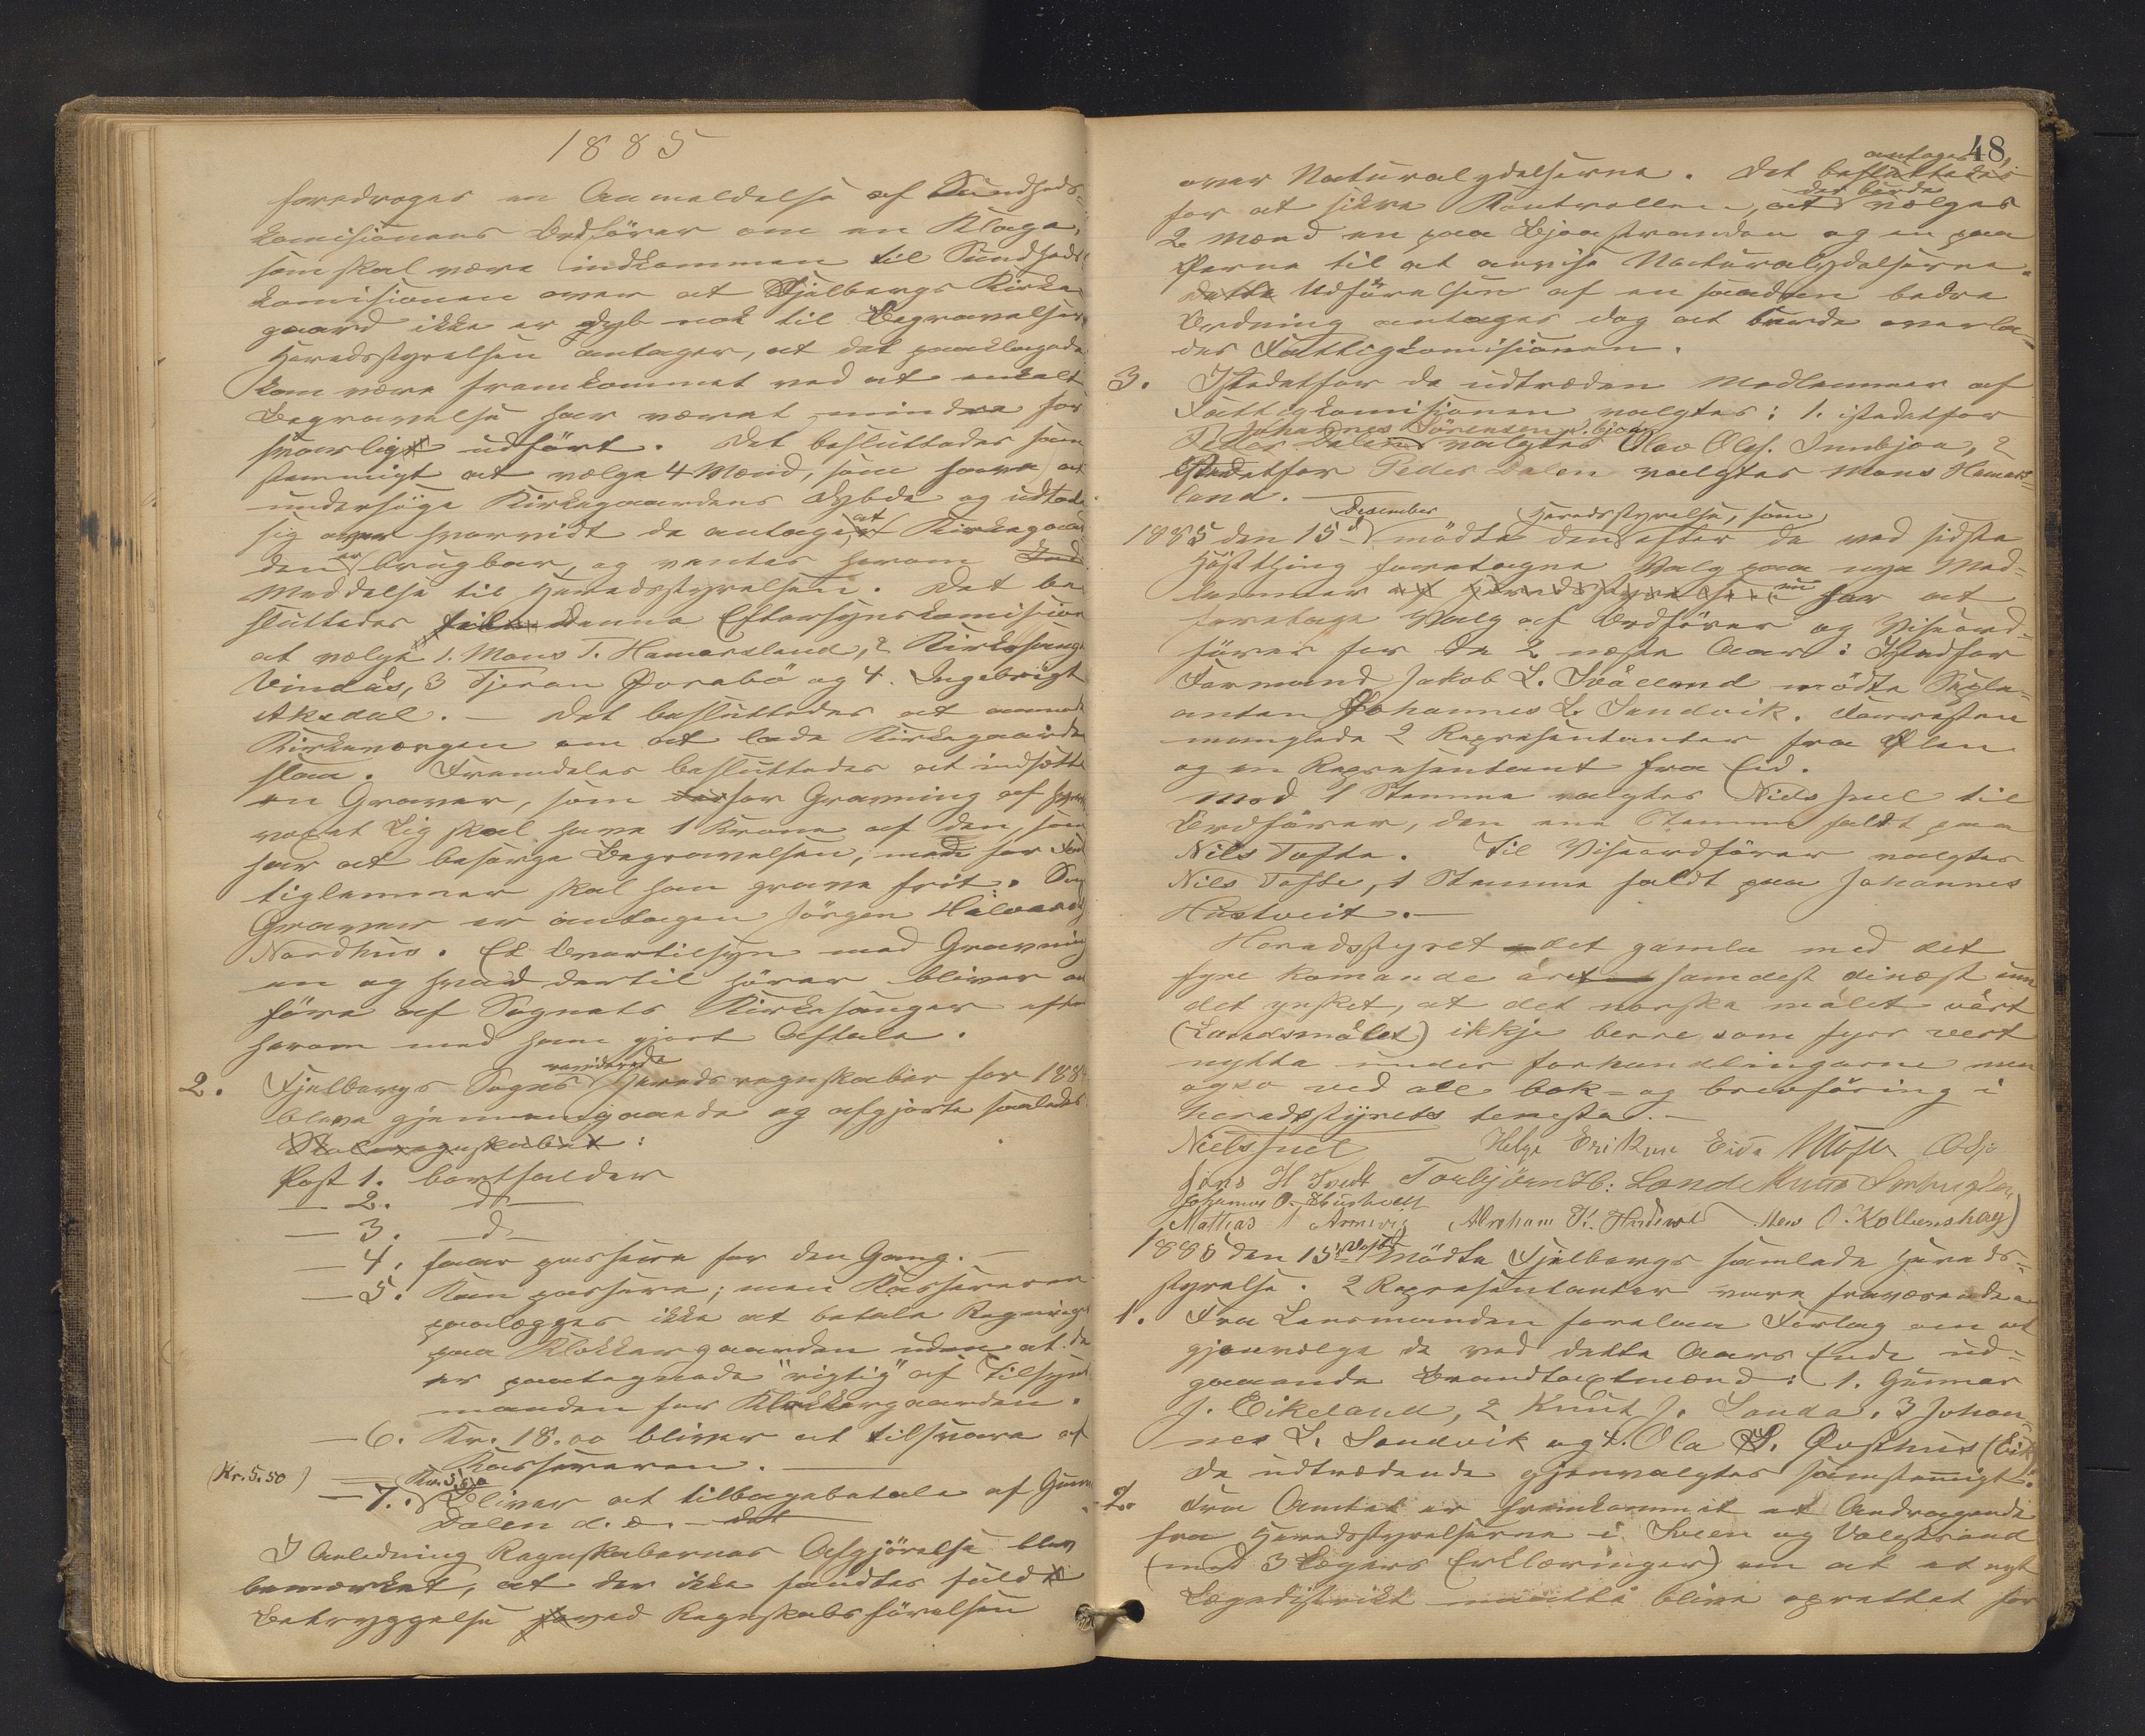 1885
foredroges en Anmeldelse af Sundheds-
komisionens Ordförer om en Klage,
som skal være indkommen til Sundheds-
komisionen over at Fjelbergs Kirke-
gaard ikke er dyb nok til Begravelser.
Heredsstyrelsen antager, at det paaklagede
kan være fremkommet ved at enkelt
Begravelse har været mindre for
svarligt udfört. Det besluttedes sam
stemmigt at vælge 4 Mænd, som have at
undersöge Kirkegaardens Dybde og udtale
sig over hvorvidt de antager at Kirkegaar
den er brugbar, og ventes herom
Meddelse til Heredsstyrelsen. Det be
sluttedes til Denne Eftersynskomision
at vælge 1. Mons T. Hamarsland, 2 Kirkesanger
Vindås, 3 Tjeran Ørebö og 4. Ingebrigt
Aksdal. — Det besluttedes at anmode
Kirkeværgen om at lade Kirkegaarden
slaa. Fremdeles besluttedes at indsætte
en Graver, som for Gravning af hver
voxet Lig skal have 1 Krone af den, som
har at besörge Begravelsen, men for Fat
tiglemmer skal han grave frit. Som
Graver er antagen Jörgen Halvards
Nordhus. Et Overtilsyn med Gravning
en og hvad dertil hörer bliver at
före af Sognets Kirkesanger efter
herom med ham gjort Aftale.
2. Fjelbergs Sogns reviderede Heredsregnskaber for 188
bleve gjennemgaaede og afgjorte saaledes
Skoleregnskabet:
Post 1. bortfalder
— 2. do
— 3. do
— 4. faar passere for den Gang. —
— 5. Kan passere; men Kassereren
paalægges ikke at betale Regninger
paa Klokkergaarden uden at de
er paategnede "rigtig" af Tilsyns
manden for Klokkergaarden.
— 6. Kr. 18.00 bliver at tilsvare af
Kassereren. —
(Kr. 5.50) — 7. Kr. 5,50 Bliver at tilbagebetale af Gunn
Dalen d. æ. — det
I Anledning Regnskabernes Afgjörelse blev
bemærket, at der ikke fandtes fuld
Betryggelse ved Regnskabsförelsen
48
over Naturalydelserne. Det besluttedes antages,
for at sikre Kontrollen, at der burde vælges
2 Mænd en paa Bjoastranden og en paa
Ølene til at anvise Naturalydelserne.
Dette Udförelsen af en saadan bedre
Ordning antages dog at burde overla-
des Fattigkomisionen.
3. Istedetfor de udtræden Medlemmer af
Fattigkomisionen valgtes: 1. istedetfor
Johannes Sörensen Bjoa
Peder Dalen valgtes Olav Ols. Innbjoa, 2
Istedetfor Peder Dalen valgtes Mons Hamars-
land. —
1885 den 15d Desember mödte den Heredsstyrelse, som efter de ved sidste
Hösttthing foretagne Valg paa nye Med-
lemmer af Heredsstyrelsen nu har at
foretage Valg af Ordförer og Viseord-
förer for de 2 næste Aar: Istedfor
Formand Jakob L. Svåland mödte Suple-
anten Johannes L. Sandvik. Forresten
manglede 2 Representanter fra Ølen
og en Representant fra Eid.
Mod 1 Stemme valgtes Niels Juel til
Ordförer, den ene Stemme faldt paa
Nils Tofte. Til Viseordförer valgtes
Nils Tofte, 1 Stemme faldt paa Johannes
Hustveit. —
Heradsstyret det gamla med det
fyre komande året samdest dinæst um
det ynsket, at det norske målet vårt
(Landsmålet) ikkje berre som fyrr vert
nytta under forhandlingarne men
ogso ved all bok- og brevföring i
heradsstyrets tenesta. —
Niels Juel Helge Erikson Eide NTofte
Jens H Tvedt Torbjörn H: Lande Knut
Johannes O. Hustveit
Mathias Abraham K. O. Kollenshaug
1885 den 15de mödte Fjelbergs samlede Hereds-
styrelse. 2 Representanter vare fraværende.
1. Fra Lensmanden forelaa Forlag om at
gjenvælge de ved dette Aars Ende ud-
gaaende Brandtaxtmænd: 1. Gunnar
J. Eikeland, 2 Knut J. Landa. 3 Johan-
nes L. Sandvik og 4. Ola S. Østhus (Eik
De udtrædende gjenvalgtes samstemmigt:
2. Fra Amtet er fremkommet et Andragende
fra Heredsstyrelserne i Sveen og Valestrand
(med 3 Lægers Erklæringer) om at et nyt
Lægedistrikt maatte blive oprettet for